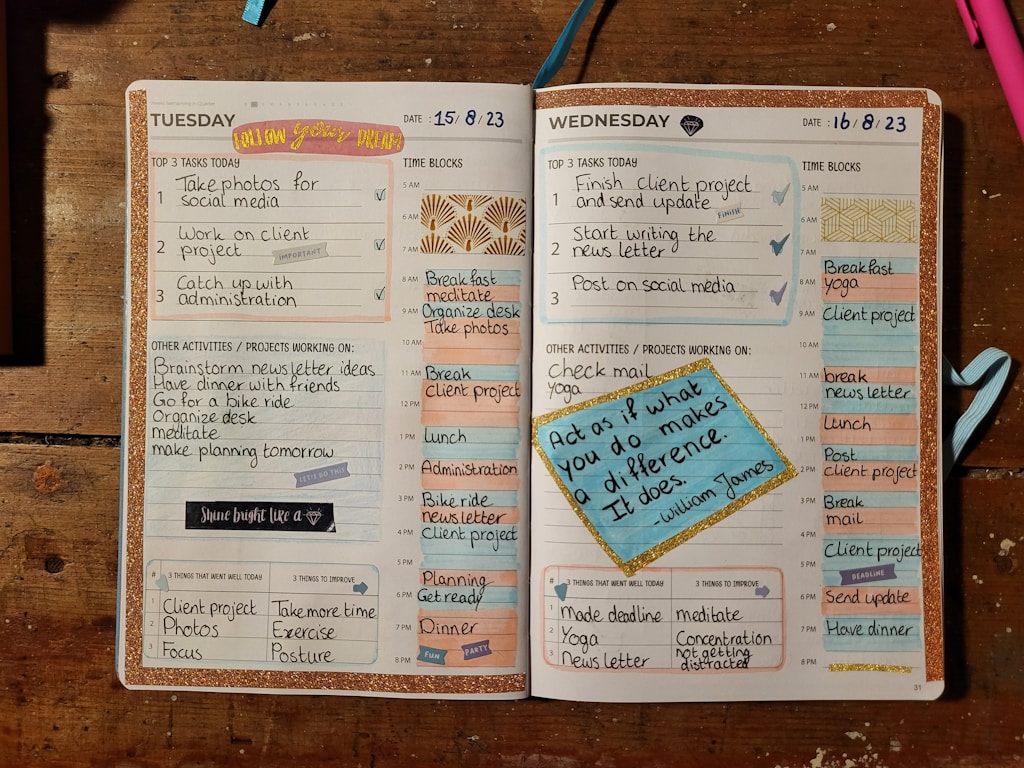 TUESDAY
FOLLOW your DREAM
DATE : 15/8/23
TOP 3 TASKS TODAY
1 Take photos for
social media
2 Work on client
project
IMPORTANT
3 Catch up with
administration
OTHER ACTIVITIES / PROJECTS WORKING ON:
Brainstorm newsletter ideas
Have dinner with friends
Go for a bike ride
Organize desk
meditate
make planning tomorrow
LET'S DO THIS
Shine bright like a
# 3 THINGS THAT WENT WELL TODAY 3 THINGS TO IMPROVE
1 Client project Take more time
2 Photos Exercise
3 Focus Posture
TIME BLOCKS
5 AM
6 AM
7 AM
8 AM Breakfast
meditate
9 AM Organize desk
Take photos
10 AM
11 AM Break
Client project
12 PM
1 PM Lunch
2 PM Administration
3 PM Bike ride
newsletter
4 PM Client project
5 PM
Planning
6 PM Get ready
7 PM Dinner
FUN PARTY
8 PM
WEDNESDAY
DATE : 16/8/23
TOP 3 TASKS TODAY
1 Finish Client project
and send update
FINISH
2 Start writing the
news letter
3 Post on social media
OTHER ACTIVITIES / PROJECTS WORKING ON:
Check mail
yoga
Act as if what
you do makes
a difference.
It does.
-William James
# 3 THINGS THAT WENT WELL TODAY 3 THINGS TO IMPROVE
1 Made deadline meditate
2 Yoga Concentration
3 News letter not getting
distracted
TIME BLOCKS
5 AM
6 AM
7 AM
Breakfast
8 AM yoga
9 AM Client project
10 AM
11 AM break
news letter
12 PM
Lunch
1 PM
Post
2 PM client project
3 PM Break
mail
4 PM
Client project
5 PM
DEADLINE
6 PM Send update
7 PM Have dinner
8 PM
31